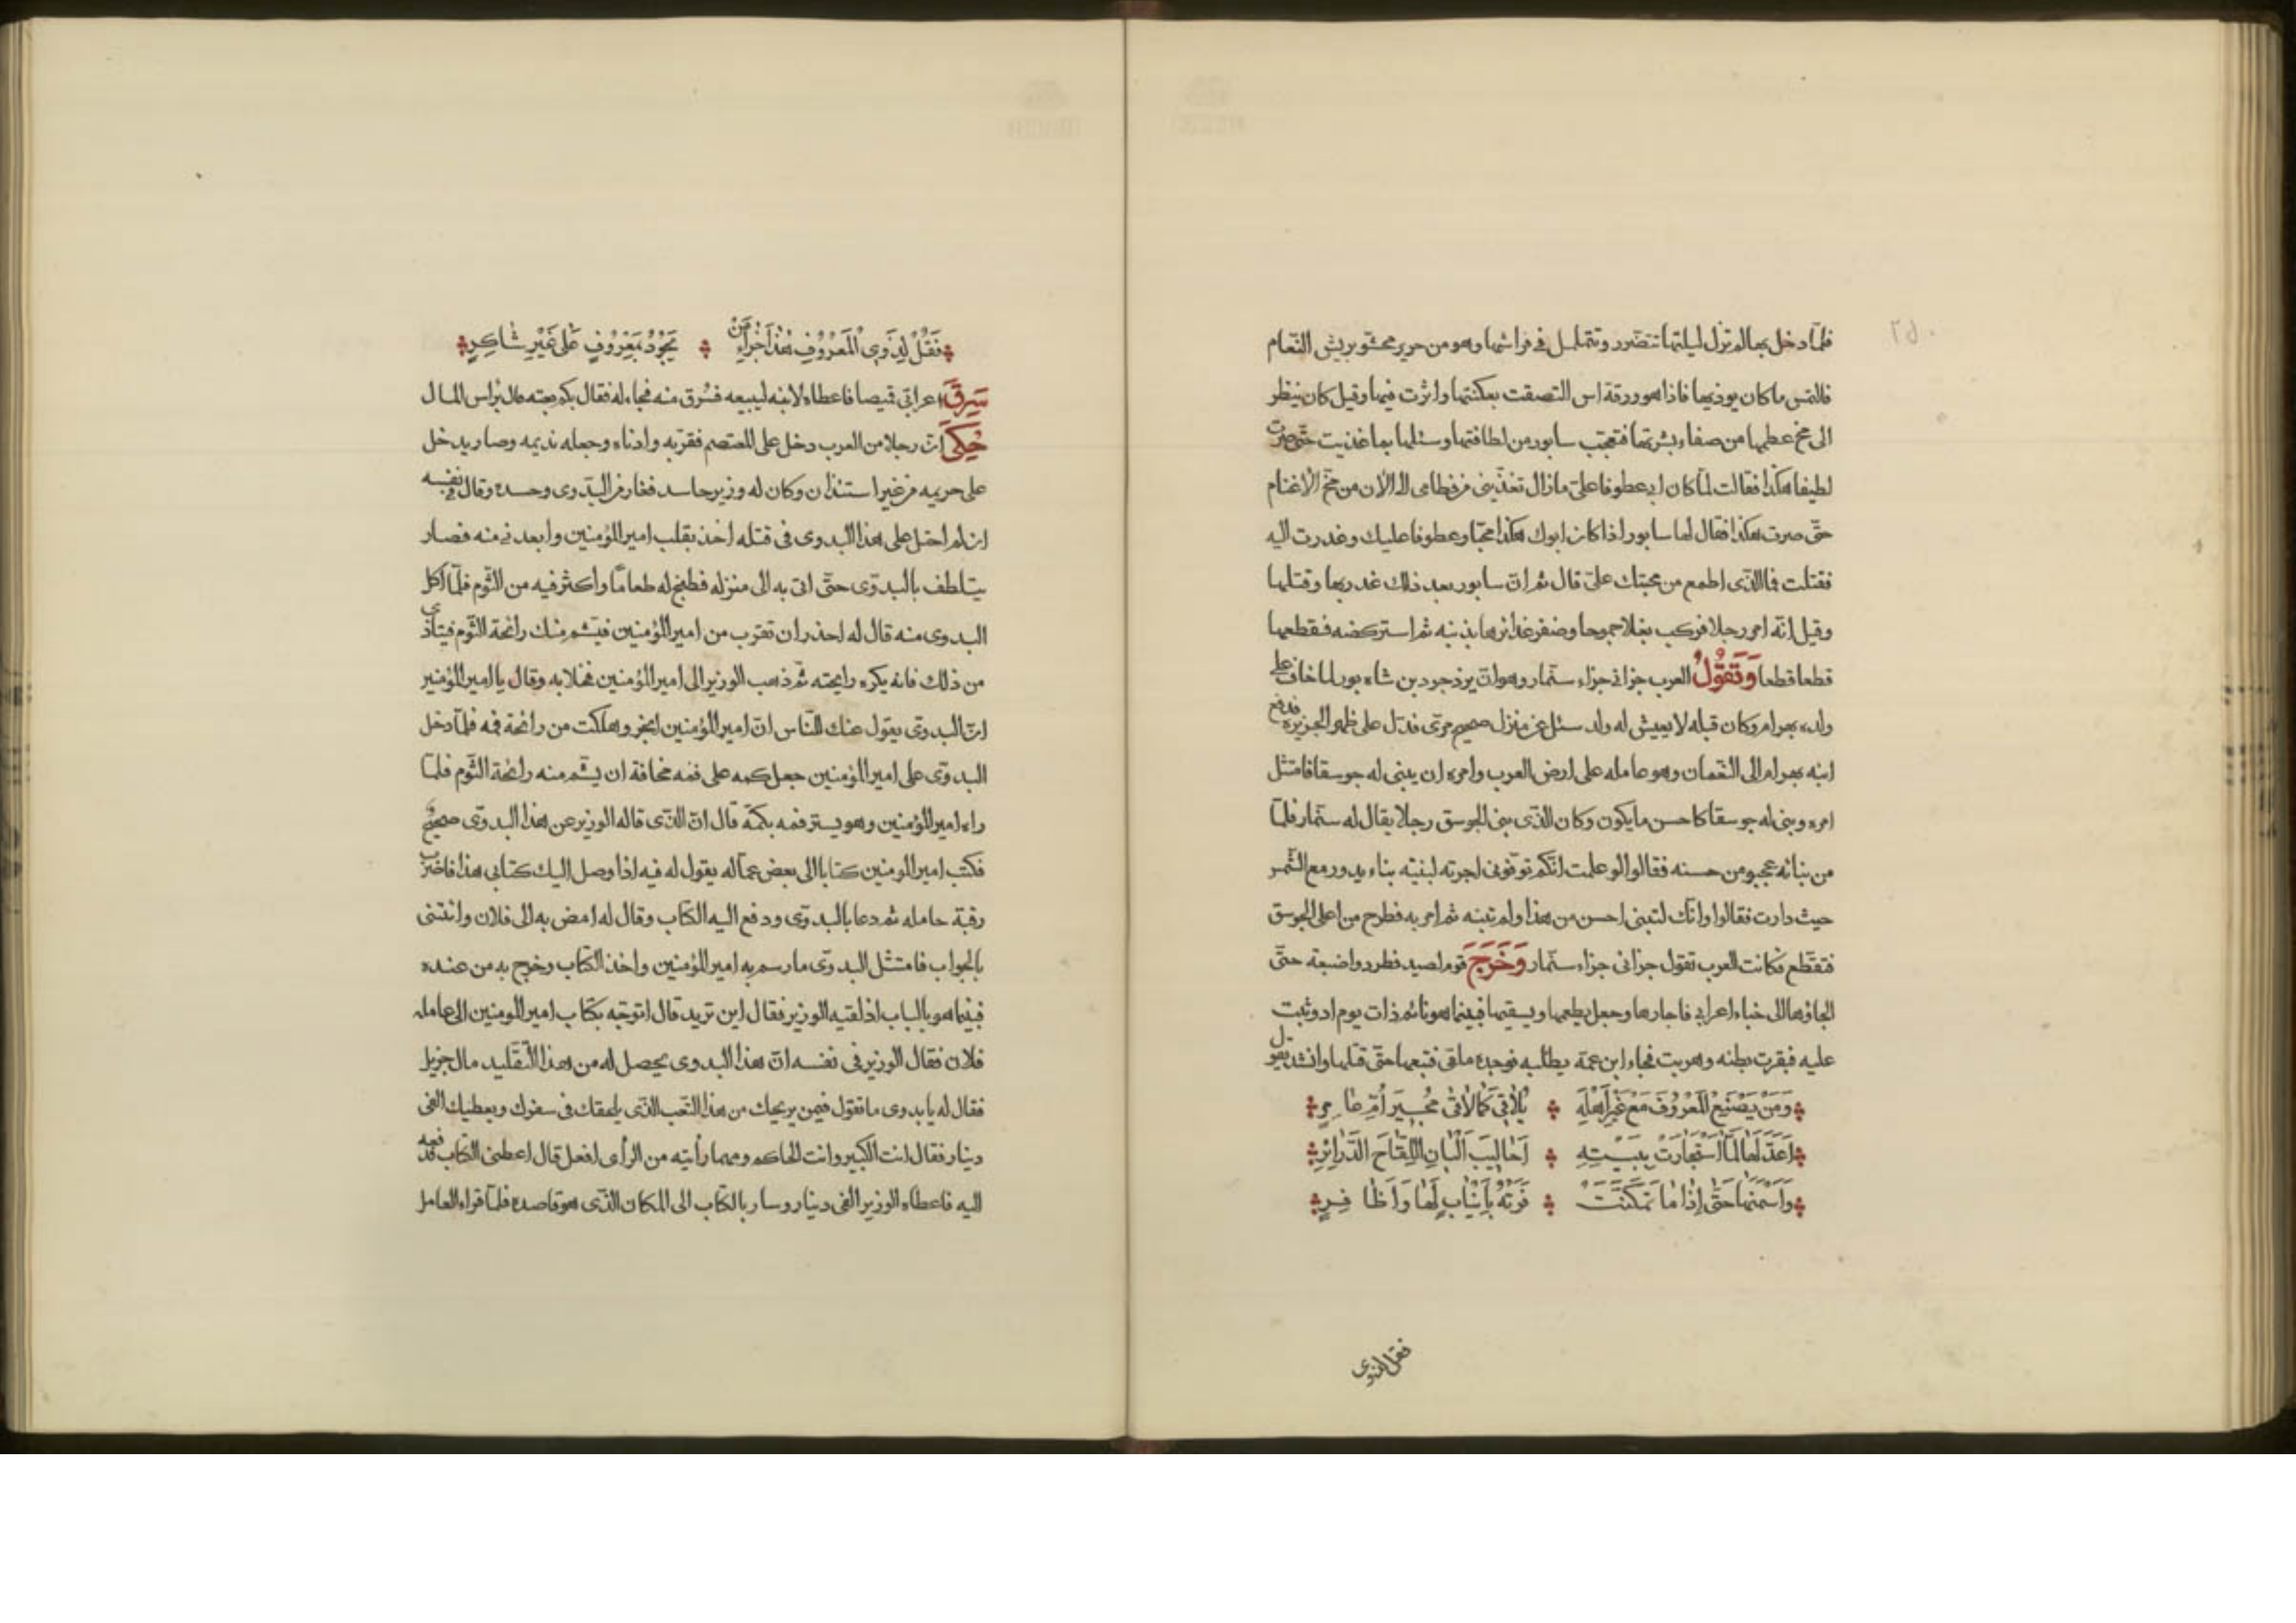 فلمّا دخل بها لم تزل ليلتها تتضرر وتتململ في فراشها وهو من حرير محشو بريش النّعام
فالتمس ما كان يوذيها فاذا هو ورقة اس التصقت بعكنتها واثرت فيها وقيل كان ينظر
الى مخ عظمها من صفاء بشرتها فتعجّب سابور من لطافتها وسئلها بما غذيت حتّى صرت
لطيفا هكذا فقالت لمّا كان ابى عطوفا علىّ مازال تغذّينى من فطامى الى الآن من مخّ الاغنام
حتّى صرت هكذا فقال لها سابور اذا كان ابوك هكذا محبّا وعطوفا عليك وغدرت اليه
فقتلت فما الذّى اطمع من محبتك علىّ قال ثم انّ سابور بعد ذلك غدر بها وقتلها
وقيل انّه امر رجلا فركب بغلا جموحا وضفر غدائرها بذنبه ثم استركضه فقطعها
قطعا قطعا وَتَقُوْلُ العرب جزانى جزاء سنّمار وهو انّ يزدجرد بن شاه بور لما خاف على
ولده بهرام وكان قبله لا يعيش له ولد سئل عن منزل صحيح مرى فدلّ على ظهر الجزيرة فدفع
ابنه بهرام الى النعمان وهو عامله على ارض العرب وامره ان يبنى له جوسقا فامتثل
امره وبنى له جوسقا كاحسن ما يكون وكان الذّى بنى الجوسق رجلا يقال له سنّمار فلمّا
من بنائه عجبو من حسنه فقالوا لو علمت انّكم توفّونى اجرته لبنيته بناء يدور مع الشّمس
حيث دارت فقالوا وانّك لتبنى احسن من هذا ولم تبنه ثم امر به فطرح من اعلى الجوسق
فتقطّع فكانت العرب تقول جزانى جزاء سنّمار وَخَرَجَ قوم لصيد فطردوا ضبعة حتّى
الجاؤها الى خباء اعرابى فاجارها وجعل يطعمها ويسقيها فبينما هو نائم ذات يوم اذ وثبت
عليه فبقرت بطنه وهربت فجاء ابن عمّه يطلبه فوجده ملقى فتبعها حتّى قتلها وانشد يقول
وَمَنْ يَصْنَعِ الْمَعْرُوْفَ مَعْ غَيْرِ اَهْلِهِ ۞ يُلَاقِىْ كَمَا لَاقَىْ مُجِيْرَ اُمِّ عَامِرٍ
اَعَدَّ لَهَا لَمَّا اسْتَجَارَتْ بِبَيْتِهِ ۞ اَحَالِيْبَ اَلْبَانِ اللِّقَاحِ الدَّرَائِرِ
وَاَسْمَنَهَا حَتَّىْ اِذَا مَا تَمَكَّنَتْ ۞ فَرَتْهُ بِاَنْيَابٍ لَهَا وَاَظَافِرٍ
فقل لذوى
فَقُلْ لِذَوِى الْمَعْرُوْفِ هٰذَا جَزَاءُ مَنْ ۞ يَجُوْدُ بِمَعْرُوْفٍ عَلَى غَيْرِ شَاكِرٍ
سَرِقَ اعرابّى قميصا فاعطاه لابنه ليبيعه فسُرق منه فجاء له فقال بكم بعته قال براس المال
حُكِىَ انّ رجلا من العرب دخل على المعتصم فقرّبه وادناه وجعله نديمه وصار يدخل
على حريمه من غير استئذان وكان له وزير حاسد فغار من البدّوى وحسده وقال فى نفسه
ان لم احتل على هذا البدوى فى قتله اخذ بقلب امير المؤمنين وابعدنى منه فصار
يتلطف بالبدوّى حتّى اتى به الى منزله فطبخ له طعامًا واكثر فيه من الثّوم فلمّا اكل
البدوى منه قال له احذر ان تقرب من امير المؤمنين فيشم منك رائحة الثّوم فيتاذّى
من ذلك فانه يكره رايحته ثم ذهب الوزير الى امير المؤمنين فخلا به وقال يا امير المؤمنين
انّ البدوّى يقول عنك للنّاس انّ امير المؤمنين ابخر وهلكت من رائحة فمه فلمّا دخل
البدوّى على امير المؤمنين جعل كمه على فمه مخافة ان يشّم منه رائحة الثّوم فلمّا
راءه امير المؤمنين وهو يستر فمه بكمّه قال انّ الذّى قاله الوزير عن هذا البدوّى صحيح
فكتب امير المومنين كتابا الى بعض عمّاله يقول له فيه اذا وصل اليك كتابى هذا فاضرب
رقبة حامله ثم دعا بالبدوّى ودفع اليه الكتاب وقال له امض به الى فلان وائتنى
بالجواب فامتثل البدوّى ما رسم به امير المؤمنين واخذ الكتاب وخرج به من عنده
فبينما هو بالباب اذ لقيه الوزير فقال اين تريد قال اتوجّه بكتاب امير المومنين الى عامله
فلان فقال الوزير فى نفسه انّ هذا البدوى يحصل له من هذا التّقليد مال جزيل
فقال له يا بدوى ما تقول فيمن يريحك من هذا التّعب الذّى يلحقك فى سفرك ويعطيك الفى
دينار فقال انت الكبير وانت الحاكم ومهما رأيته من الرأى افعل قال اعطنى الكتاب فدفعه
اليه فاعطاه الوزير الفى دينار وسار بالكتاب الى المكان الذّى هو قاصده فلمّا قراء العامل